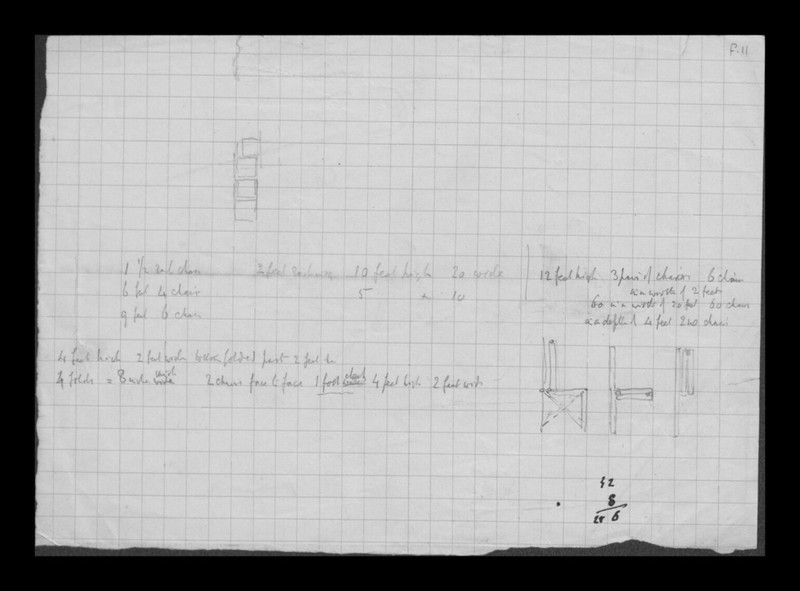 F.11
1 1/2 each chair
6 feet 4 chair
9 feet 6 chairs
2 feet each 10 feet high 20 wide
5 × 10
12 feet high 3 pair of chairs 6 chairs
in a width of 2 feet
60 in a width of 20 feet 60 chairs
in a depth of 4 feet 240 chairs
4 feet high 2 feet wide folded part 2 feet
4 folds = 8 wide
2 chairs face to face 1 foot 4 feet high 2 feet wide
32
8
256